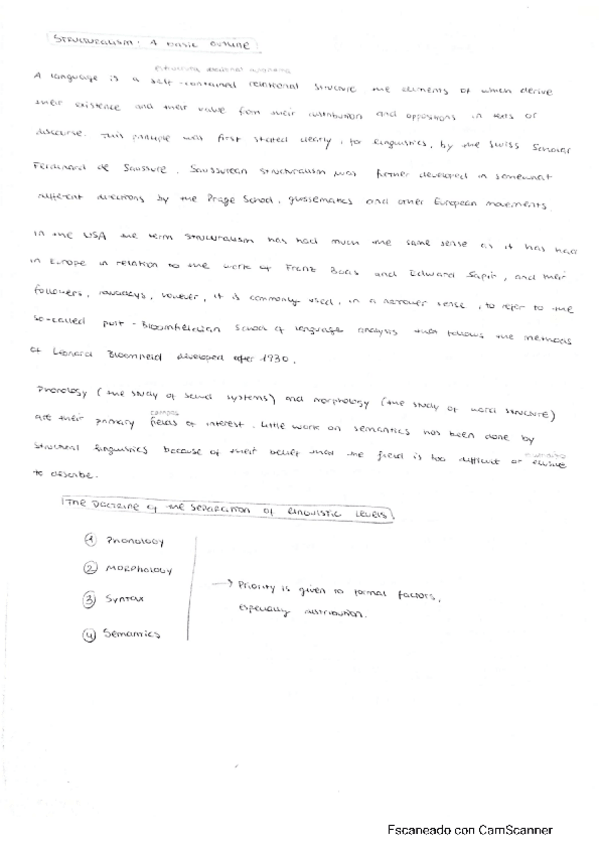 STRUCTURALISM: A BASIC OUTLINE
A language is a self-contained relational structure the elements of which derive
their existence and their value from their distribution and oppositions in texts or
discourse. This principle was first stated clearly, for linguistics, by the Swiss Scholar
Ferdinand de Saussure. Saussurean structuralism was further developed in somewhat
different directions by the Prage School, glossematics and other European movements.
In the USA the term structuralism has had much the same sense as it has had
in Europe in relation to the work of Franz Boas and Edward Sapir, and their
followers, nowadays, however, it is commonly used, in a narrower sense, to refer to the
so-called post-Bloomfieldian school of language analysis that follows the methods
of Leonard Bloomfield developed after 1930.
campos
Phonology (the study of sound systems) and morphology (the study of word structure)
are their primary fields of interest. Little work on semantics has been done by
structural linguistics because of their belief that the field is too difficult or elusive
to describe.
THE DOCTRINE OF THE SEPARATION OF LINGUISTIC LEVELS
1 Phonology
2 Morphology
3 Syntax
4 Semamics
→ Priority is given to formal factors,
especially distribution.
Escaneado con CamScanner